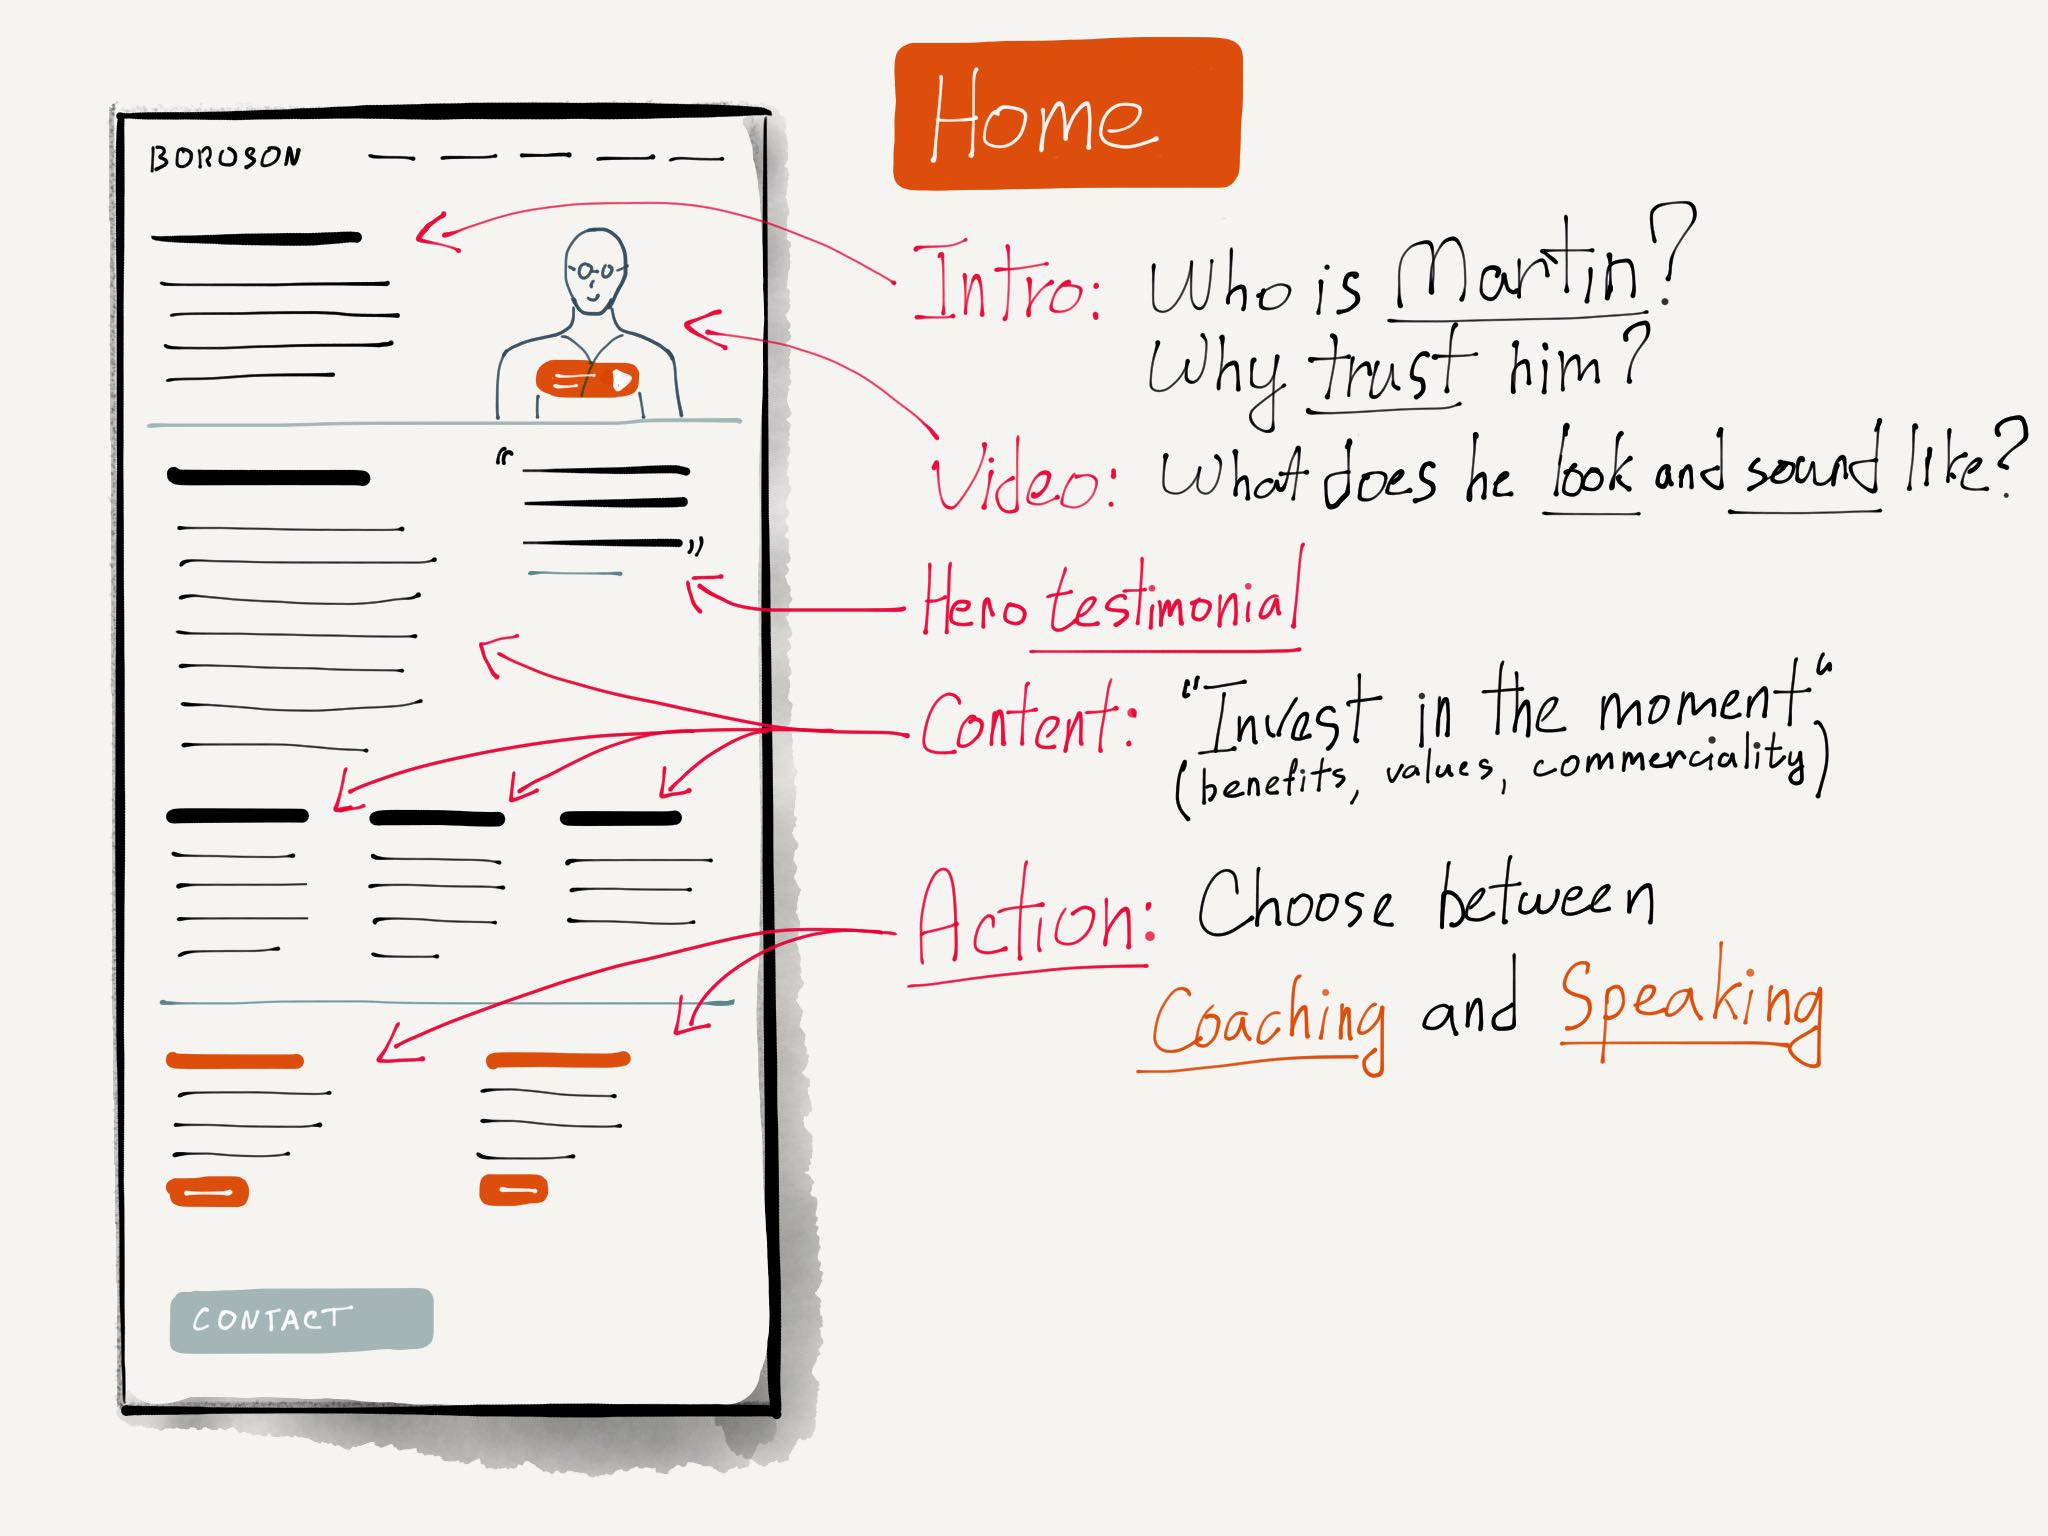 Home
BOROSON
Intro: Who is Martin?
Why trust him?
Video: What does he look and sound like?
"
"
Hero testimonial
Content: "Invest in the moment"
(benefits, values, commerciality)
Action: Choose between
Coaching and Speaking
CONTACT